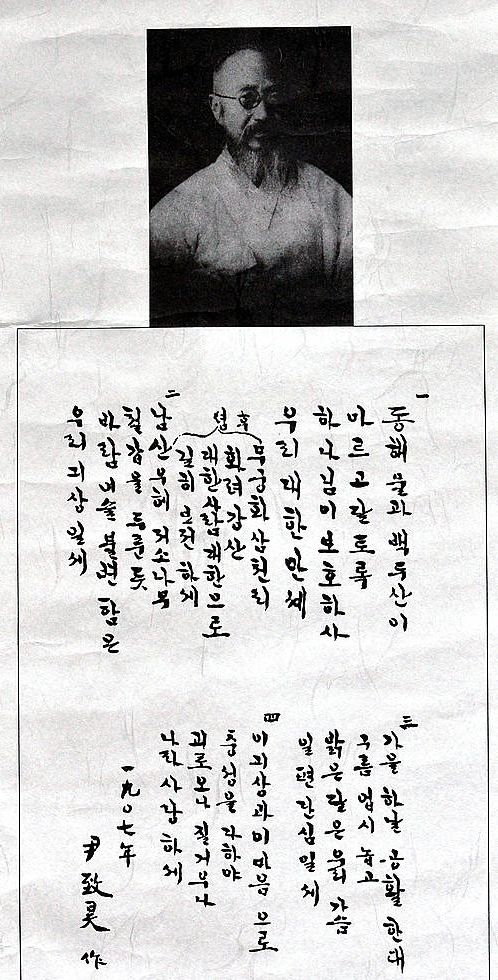 一
동해물과 백두산이
마르고 달토록
하나님이 보호하사
우리 대한 만세
후렴
무궁화 삼천리
화려강산
대한사람 대한으로
길히 보전하세
二
남산우헤 저소나무
철갑을 두룬듯
바람이슬 불변함은
우리긔상일세
三
가을하날 공활한대
구름업시 놉고
밝은달은 우리가슴
일편단심일세
四
이긔상과이마음으로
충성을 다하야
괴로오나 질거우나
나라사랑하세
一九〇七年
尹致昊 作